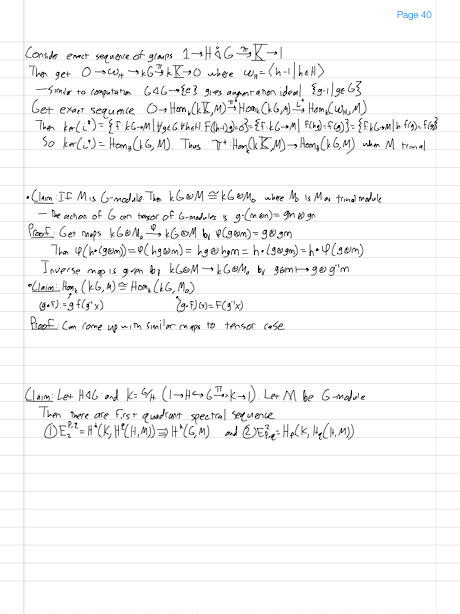 Page 40
Consider exact sequence of groups 1→H↪G→K→1
Then get 0→ω_H→kG→kK→0 where ω_H=⟨h-1|h∈H⟩
-Similar to computation G◁G→{e} gives augmentation ideal {g-1|g∈G}
Get exact sequence 0→Hom_k(kK,M)→Hom_k(kG,M)→Hom_k(ω_H,M)
Then ker(i*)={f:kG→M|∀g∈G,∀h∈H, f((h-1)g)=0}={f:kG→M| f(hg)=f(g)}={f:kG→M|h·f(g)=f(g)}
So ker(i*)=Hom_H(kG,M). Thus π*:Hom_k(kK,M)→Hom_H(kG,M) when M trivial
•Claim: If M is G-module Then kG⊗M≅kG⊗M₀ where M₀ is M as trivial module
- The action of G on tensor of G-modules is g·(m⊗n)=gm⊗gn
Proof: Get maps kG⊗M₀ →^φ kG⊗M by φ(g⊗m)=g⊗gm
Then φ(h·(g⊗m))=φ(hg⊗m)=hg⊗hgm=h·(g⊗gm)=h·φ(g⊗m)
Inverse map is given by kG⊗M→kG⊗M₀ by g⊗m↦g⊗g⁻¹m
•Claim: Hom_k(kG,M)≅Hom_k(kG,M₀)
(g·f):=g f(g⁻¹x) (g·f)(x)=f(g⁻¹x)
Proof: Can come up with similar maps to tensor case
Claim: Let H◁G and K=G/H (1→H↪G→^π K→1). Let M be G-module
Then there are first quadrant spectral sequence
①E₂^{p,q}=H^p(K,H^q(H,M))⇒H^*(G,M) and ②E²_{p,q}=H_p(K,H_q(H,M))